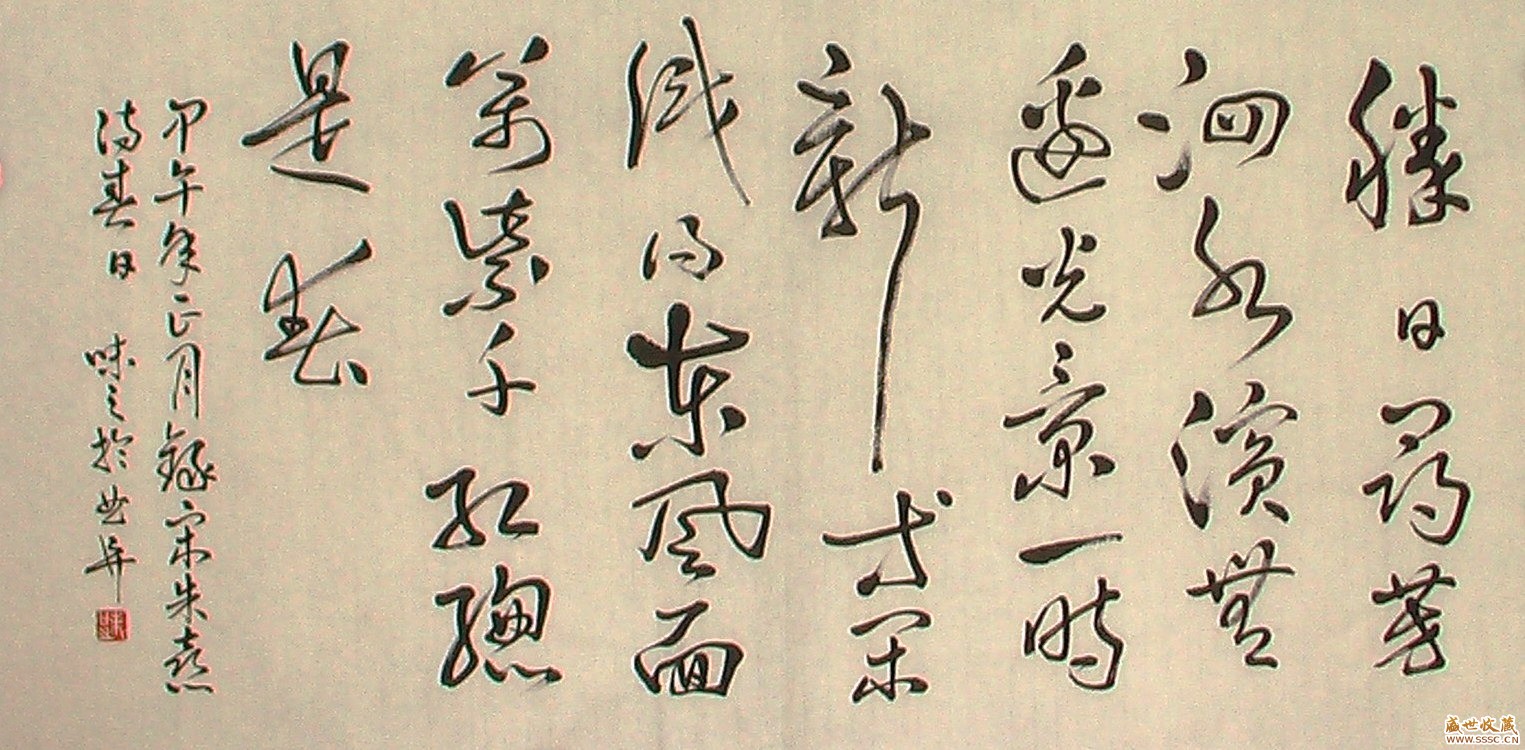 勝日尋芳
泗水濱無
邊光景一時
新等閑
識得東風面
萬紫千紅總
是春
甲午年正月錄宋朱熹
詩春日 味之於
盛世收藏
WWW.SSSC.CN